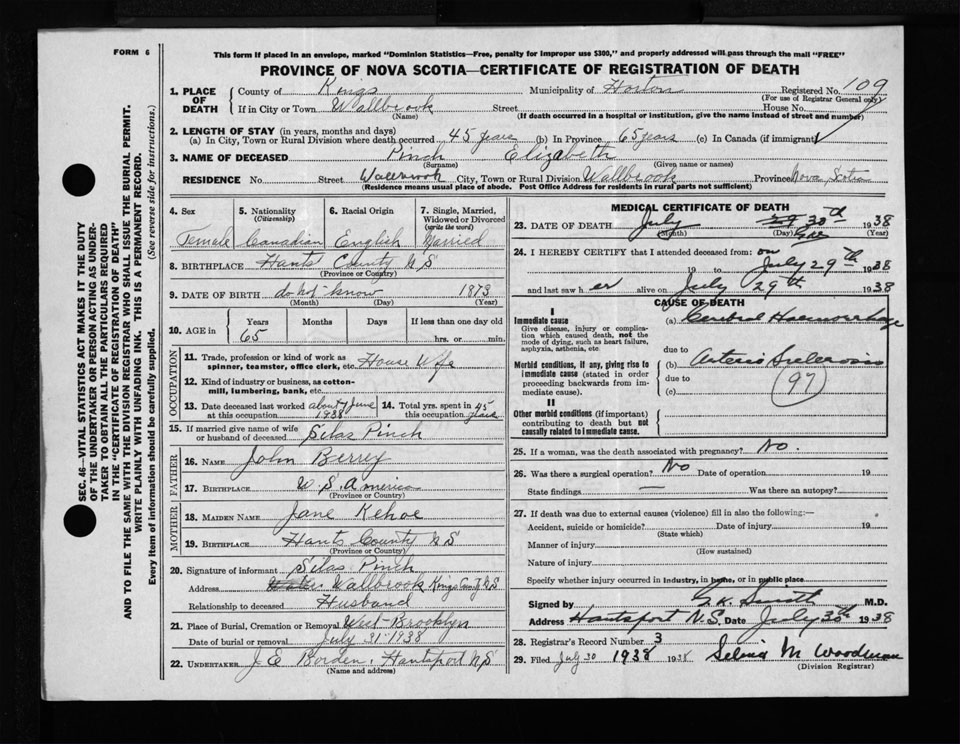 FORM 6
This form if placed in an envelope, marked "Dominion Statistics—Free, penalty for improper use $300," and properly addressed will pass through the mail "FREE"
PROVINCE OF NOVA SCOTIA—CERTIFICATE OF REGISTRATION OF DEATH
1. PLACE OF DEATH
County of Kings Municipality of Horton Registered No. 109
(For use of Registrar General only)
If in City or Town Wallbrook Street House No.
(Name) (If death occurred in a hospital or institution, give name instead of street and number)
2. LENGTH OF STAY (in years, months and days)
(a) In City, Town or Rural Division where death occurred 45 years (b) In Province 65 years (c) In Canada (if immigrant)
3. NAME OF DECEASED Pinch Elizabeth
(Surname) (Given name or names)
RESIDENCE No. Street Wallbrook City, Town or Rural Division Wallbrook Province Nova Scotia
(Residence means usual place of abode. Post Office Address for residents in rural parts not sufficient)
4. Sex 5. Nationality (Citizenship) 6. Racial Origin 7. Single, Married, Widowed or Divorced (write the word)
Female Canadian English Married
8. BIRTHPLACE Hants County N S
(Province or Country)
9. DATE OF BIRTH do not know 1873
(Month) (Day) (Year)
10. AGE in Years Months Days If less than one day old
65 hrs. or min.
OCCUPATION
11. Trade, profession or kind of work as spinner, teamster, office clerk, etc. House Wife
12. Kind of industry or business, as cotton-mill, lumbering, bank, etc.
13. Date deceased last worked at this occupation about June 1938
14. Total yrs. spent in this occupation 45 years
15. If married give name of wife or husband of deceased Silas Pinch
FATHER
16. NAME John Berrey
17. BIRTHPLACE U.S. America
(Province or Country)
MOTHER
18. MAIDEN NAME Jane Kehoe
19. BIRTHPLACE Hants County N S
(Province or Country)
20. Signature of informant Silas Pinch
Address Wallbrook Kings County N S
Relationship to deceased Husband
21. Place of Burial, Cremation or Removal West-Brooklyn
Date of burial or removal July 31-1938
22. UNDERTAKER J E Borden, Hantsport N S
(Name and address)
MEDICAL CERTIFICATE OF DEATH
23. DATE OF DEATH July 30th 1938
(Month) (Day) (Year)
24. I HEREBY CERTIFY that I attended deceased from: on July 29th 1938
19 to
and last saw her alive on July 29th 1938
CAUSE OF DEATH
I
Immediate cause
Give disease, injury or complication which caused death, not the mode of dying, such as heart failure, asphyxia, asthenia, etc.
(a) Cerebral Haemorrhage
due to
Morbid conditions, if any, giving rise to immediate cause (stated in order proceeding backwards from immediate cause).
(b) Arterio Sclerosis
due to
(c)
97
II
Other morbid conditions (if important) contributing to death but not causally related to immediate cause.
25. If a woman, was the death associated with pregnancy? No.
26. Was there a surgical operation? No Date of operation 19
State findings — Was there an autopsy?
27. If death was due to external causes (violence) fill in also the following:—
Accident, suicide or homicide? Date of injury 19
(State which)
Manner of injury
(How sustained)
Nature of injury
Specify whether injury occurred in industry, in home, or in public place
Signed by G K Smith M.D.
Address Hantsport N.S. Date July 30th 1938
28. Registrar's Record Number 3
29. Filed July 30 1938 1938 Selina M Woodman
(Division Registrar)
SEC. 46—VITAL STATISTICS ACT MAKES IT THE DUTY
OF THE UNDERTAKER OR PERSON ACTING AS UNDER-
TAKER TO OBTAIN ALL THE PARTICULARS REQUIRED
IN THE "CERTIFICATE OF REGISTRATION OF DEATH"
AND TO FILE THE SAME WITH THE DIVISION REGISTRAR WHO SHALL ISSUE THE BURIAL PERMIT.
WRITE PLAINLY WITH UNFADING INK. THIS IS A PERMANENT RECORD.
Every item of information should be carefully supplied. (See reverse side for instructions.)